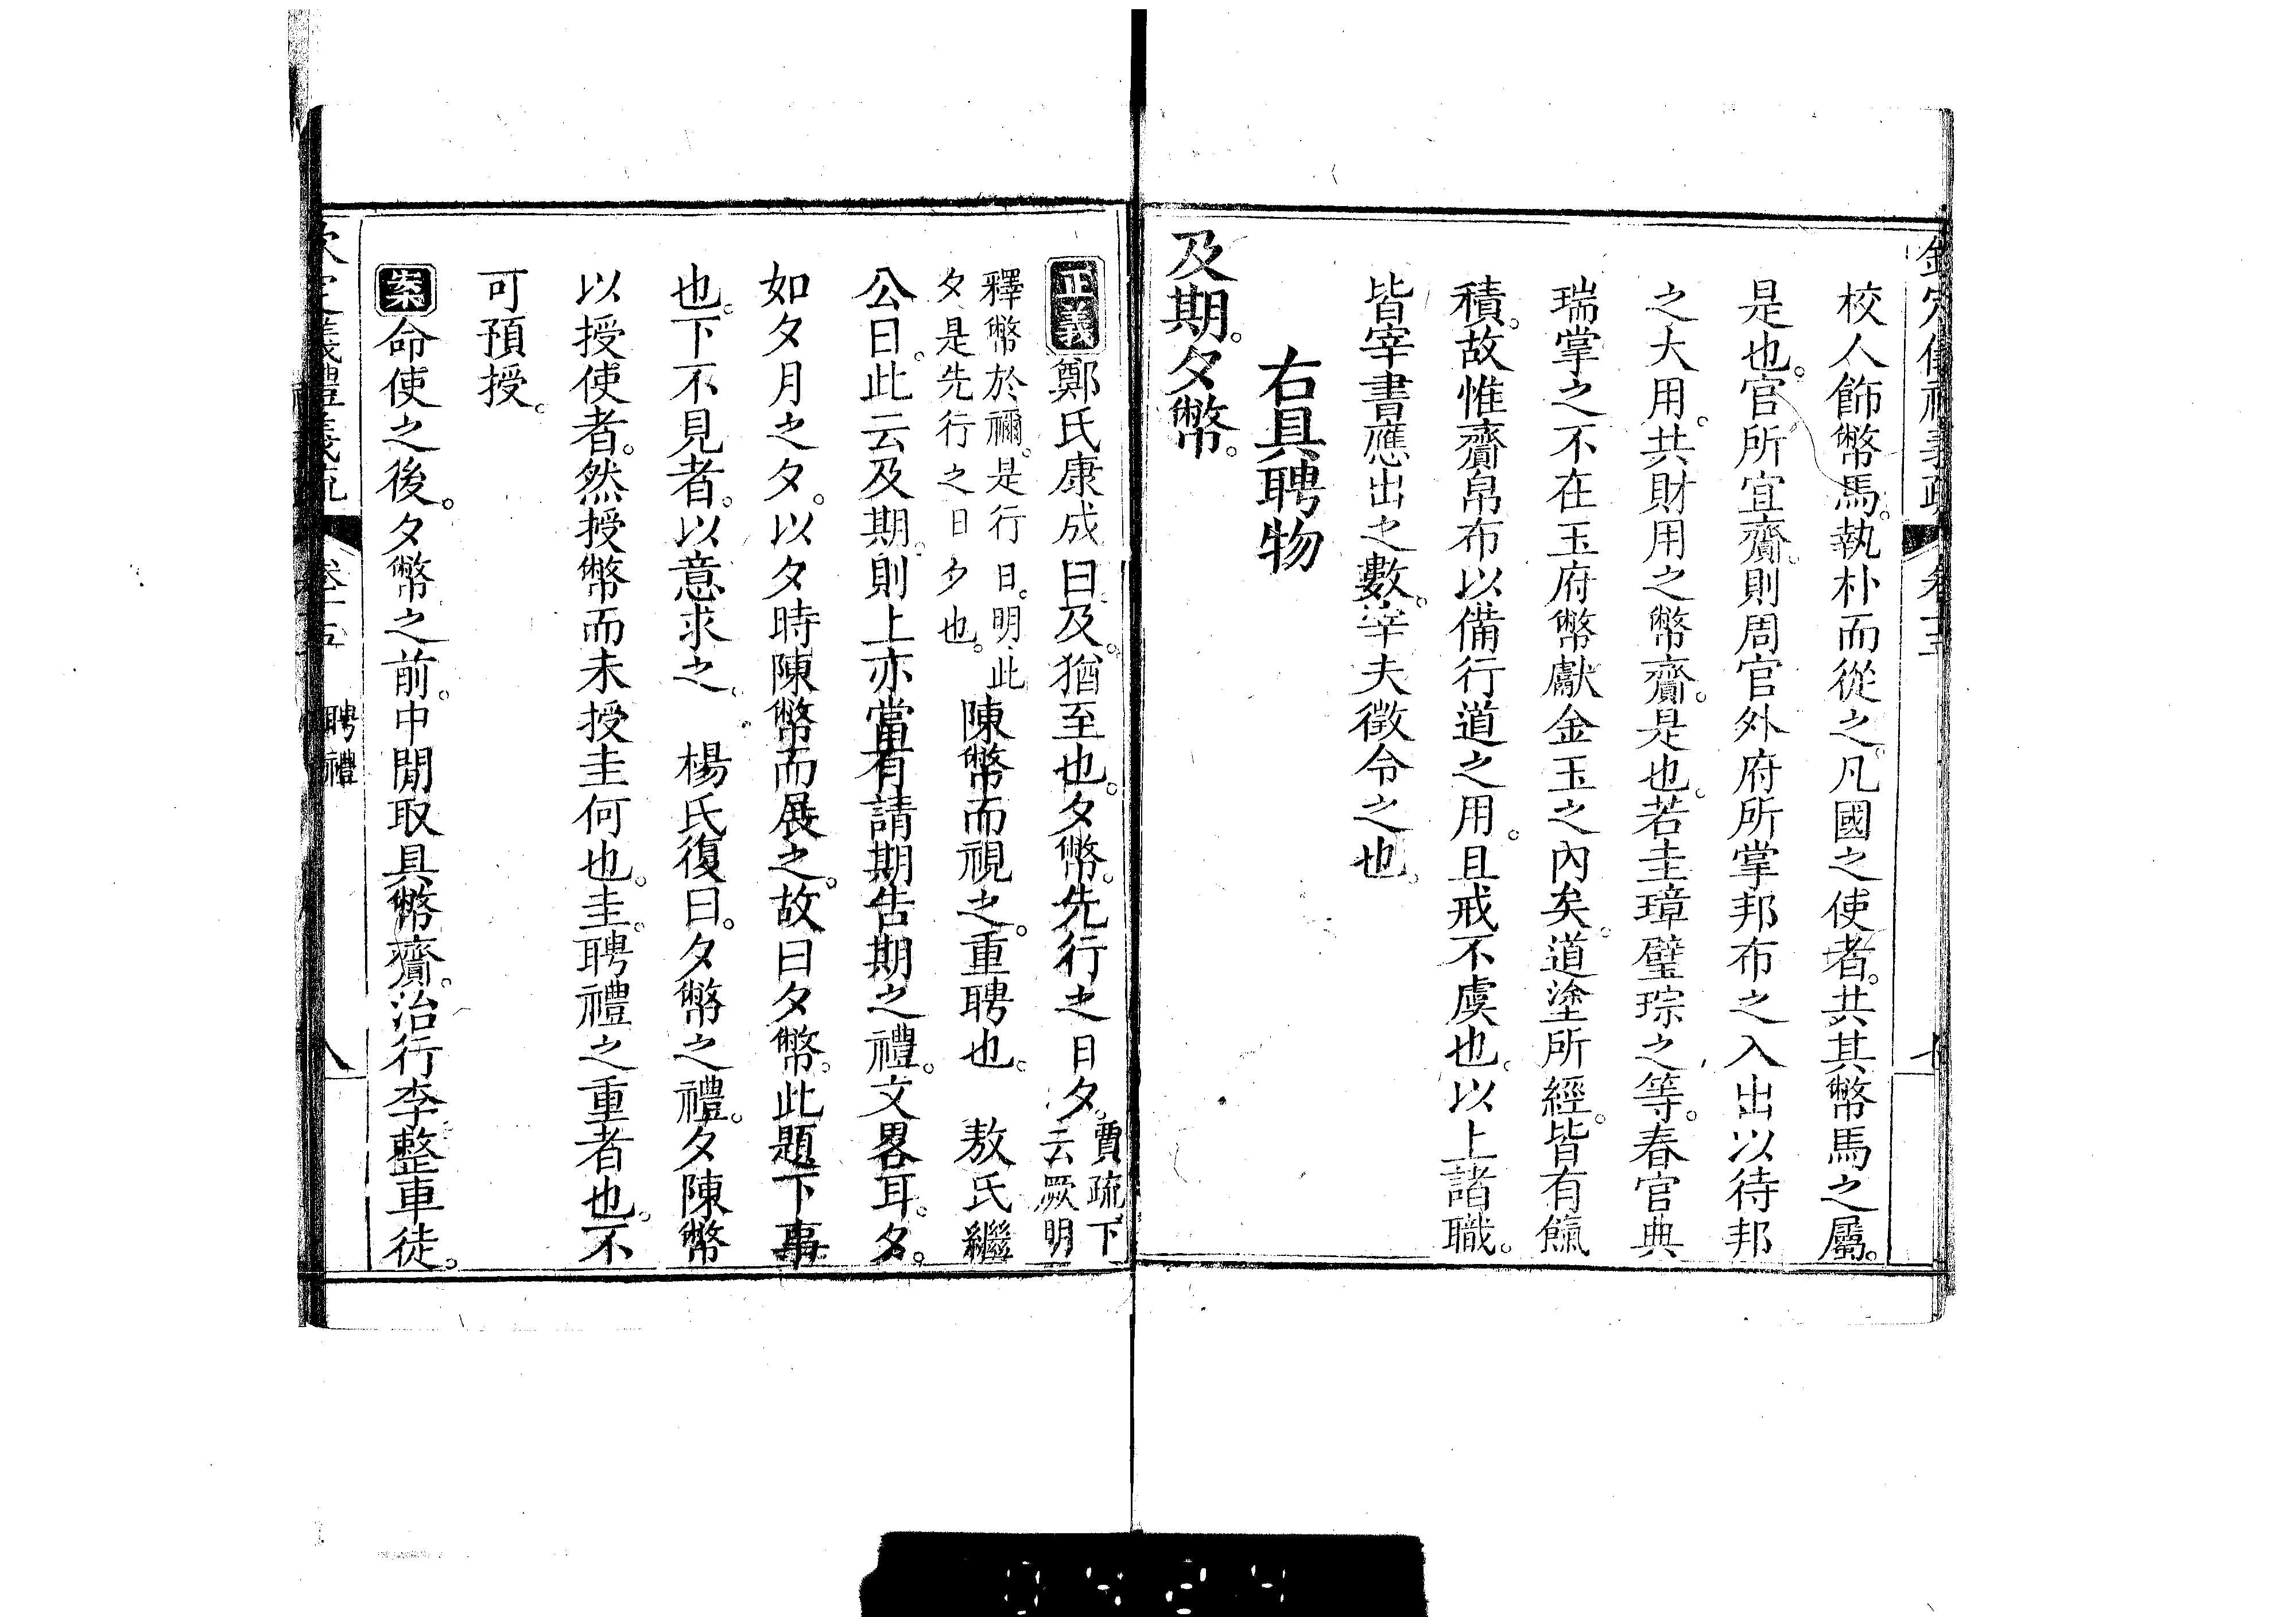 欽定儀禮義疏 卷十五
校人飾幣馬。執朴而從之。凡國之使者。共其幣馬之屬。
是也。官所宜齎。則周官外府所掌邦布之入出以待邦
之大用。共財用之幣齎。是也。若圭璋璧琮之等。春官典
瑞掌之不在玉府幣獻金玉之內矣。道塗所經。皆有餼
積。故惟齎帛布以備行道之用。且戒不虞也。以上諸職。
皆宰書應出之數。宰夫徵令之也。
右具聘物
及期。夕幣。
正義鄭氏康成曰及。猶至也。夕幣。先行之日夕。賈疏下云厥明
釋幣於禰。是行日。明此夕是先行之日夕也。陳幣而視之。重聘也。 敖氏繼
公曰。此云及期。則上亦當有請期告期之禮。文畧耳。夕。
如夕月之夕。以夕時陳幣而展之。故曰夕幣。此題下事
也。下不見者。以意求之。 楊氏復曰。夕幣之禮。夕陳幣
以授使者。然授幣而未授圭何也。圭。聘禮之重者也。不
可預授。
案命使之後。夕幣之前。中閒取具幣齎。治行李整車徒。
欽定儀禮義疏 卷十五 聘禮 八